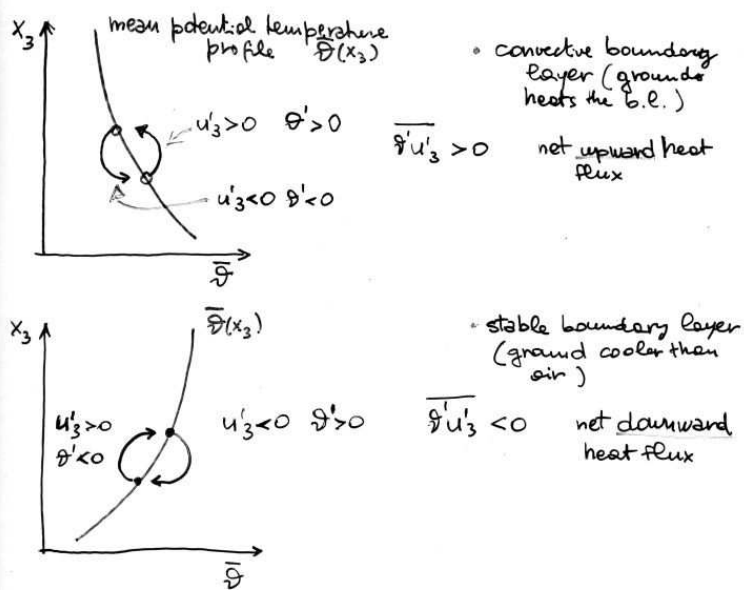 x₃
mean potential temperature
profile ϑ̅(x₃)
u'₃>0 ϑ'>0
u'₃<0 ϑ'<0
ϑ̅
• convective boundary
layer (ground
heats the b.l.)
\overline{ϑ'u'₃} > 0 net upward heat
flux
x₃
ϑ̅(x₃)
u'₃>0
ϑ'<0
u'₃<0 ϑ'>0
ϑ̅
• stable boundary layer
(ground cooler than
air)
\overline{ϑ'u'₃} < 0 net downward
heat flux